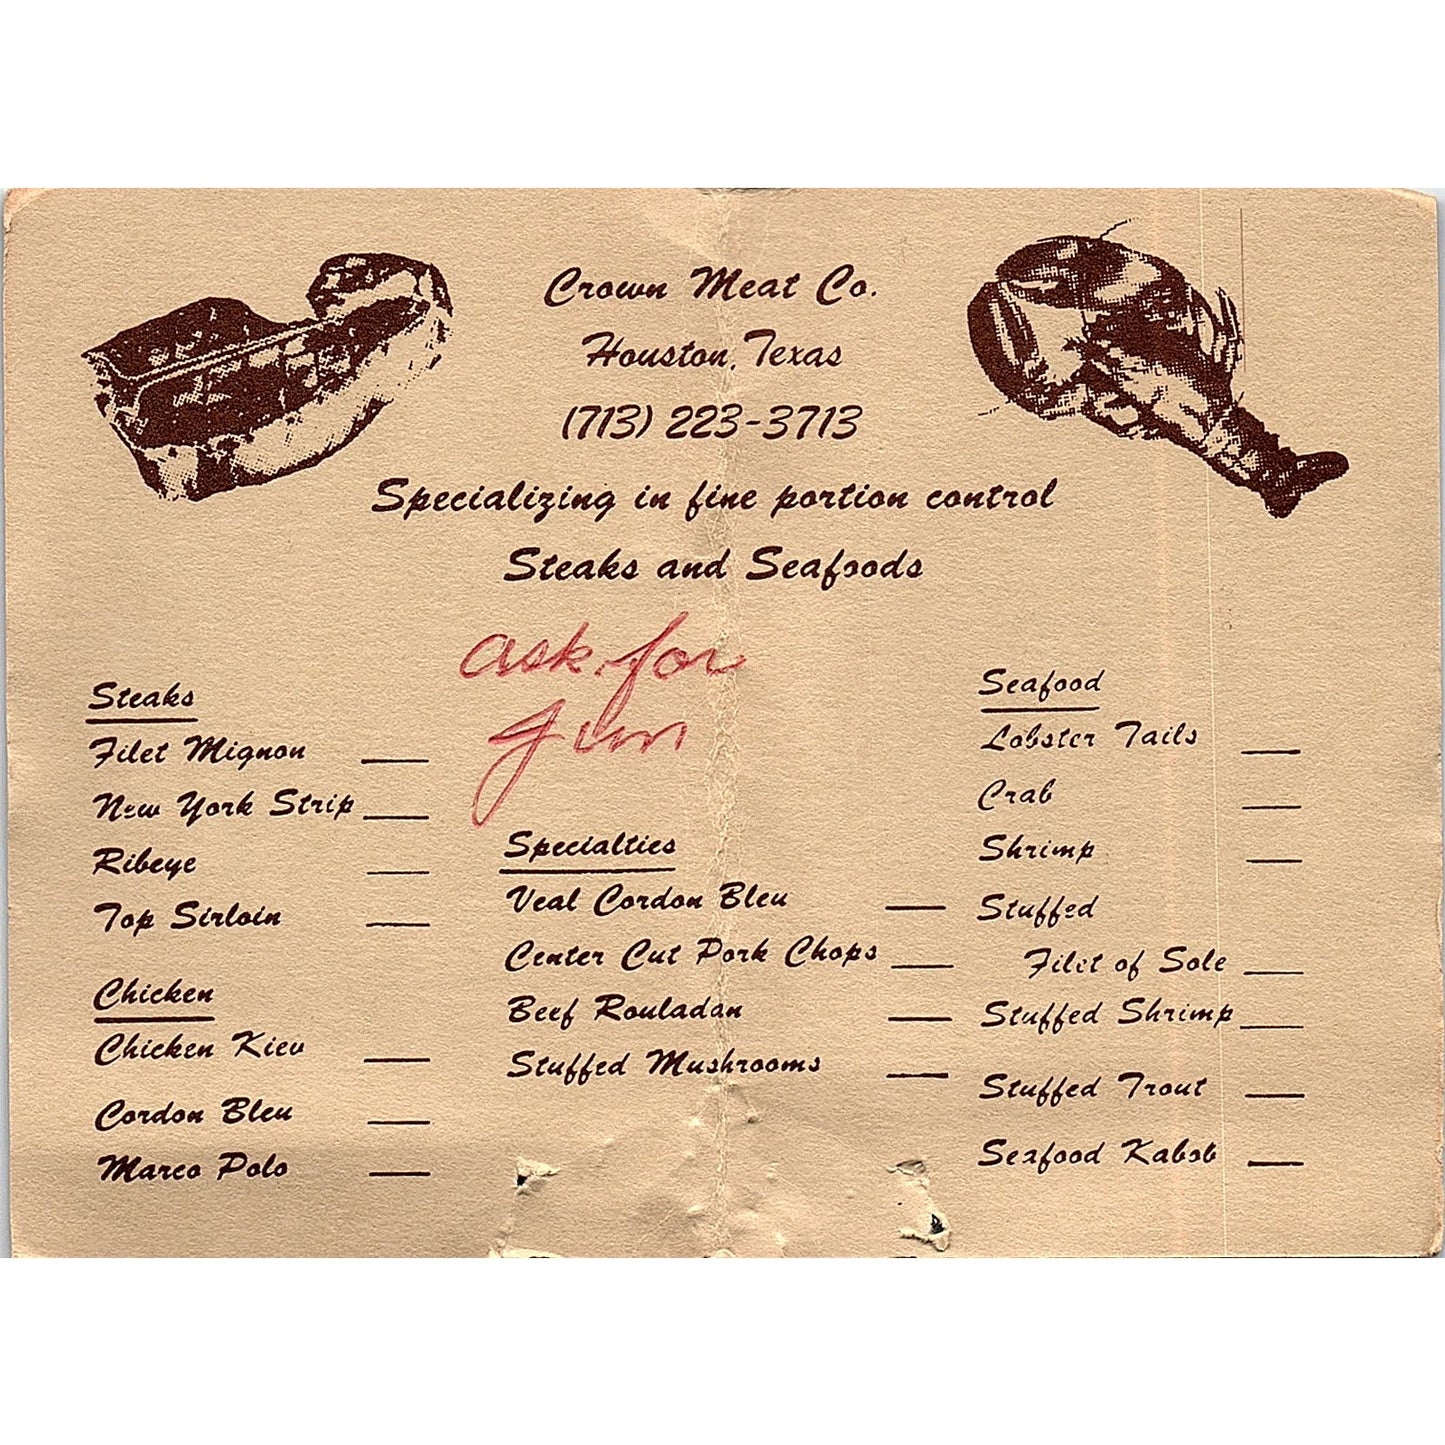 Crown Meat Co.
Houston, Texas
(713) 223-3713
Specializing in fine portion control
Steaks and Seafoods
ask for
Jim
Steaks
Filet Mignon ___
New York Strip ___
Ribeye ___
Top Sirloin ___
Chicken
Chicken Kiev ___
Cordon Bleu ___
Marco Polo ___
Specialties
Veal Cordon Bleu ___
Center Cut Pork Chops ___
Beef Rouladan ___
Stuffed Mushrooms ___
Seafood
Lobster Tails ___
Crab ___
Shrimp ___
Stuffed
Filet of Sole ___
Stuffed Shrimp ___
Stuffed Trout ___
Seafood Kabob ___